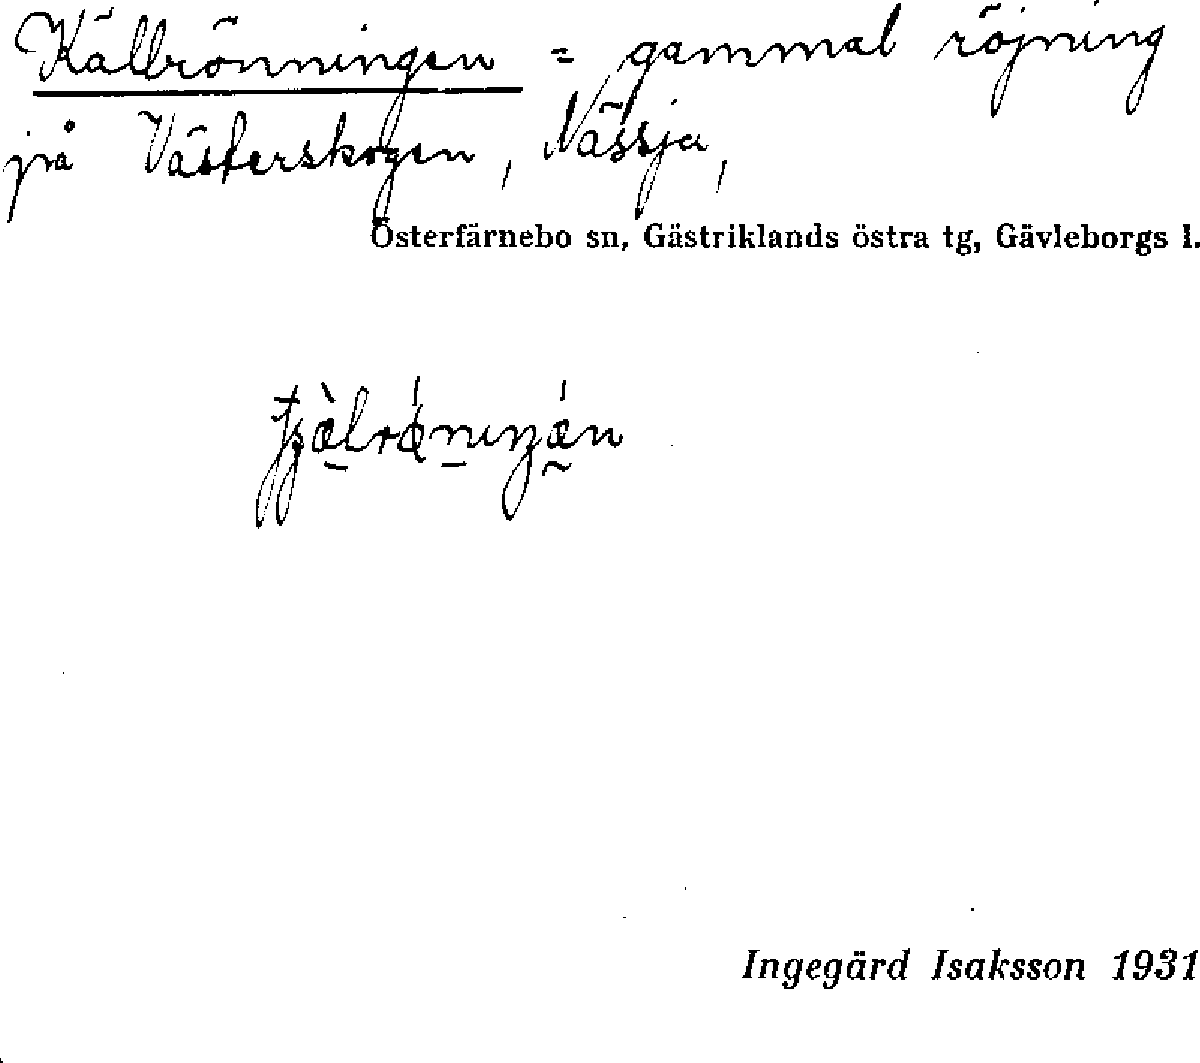 Källrönningen = gammal röjning
på Västerskogen, Nässja,
Österfärnebo sn, Gästriklands östra tg, Gävleborgs l.
Ingegärd Isaksson 1931